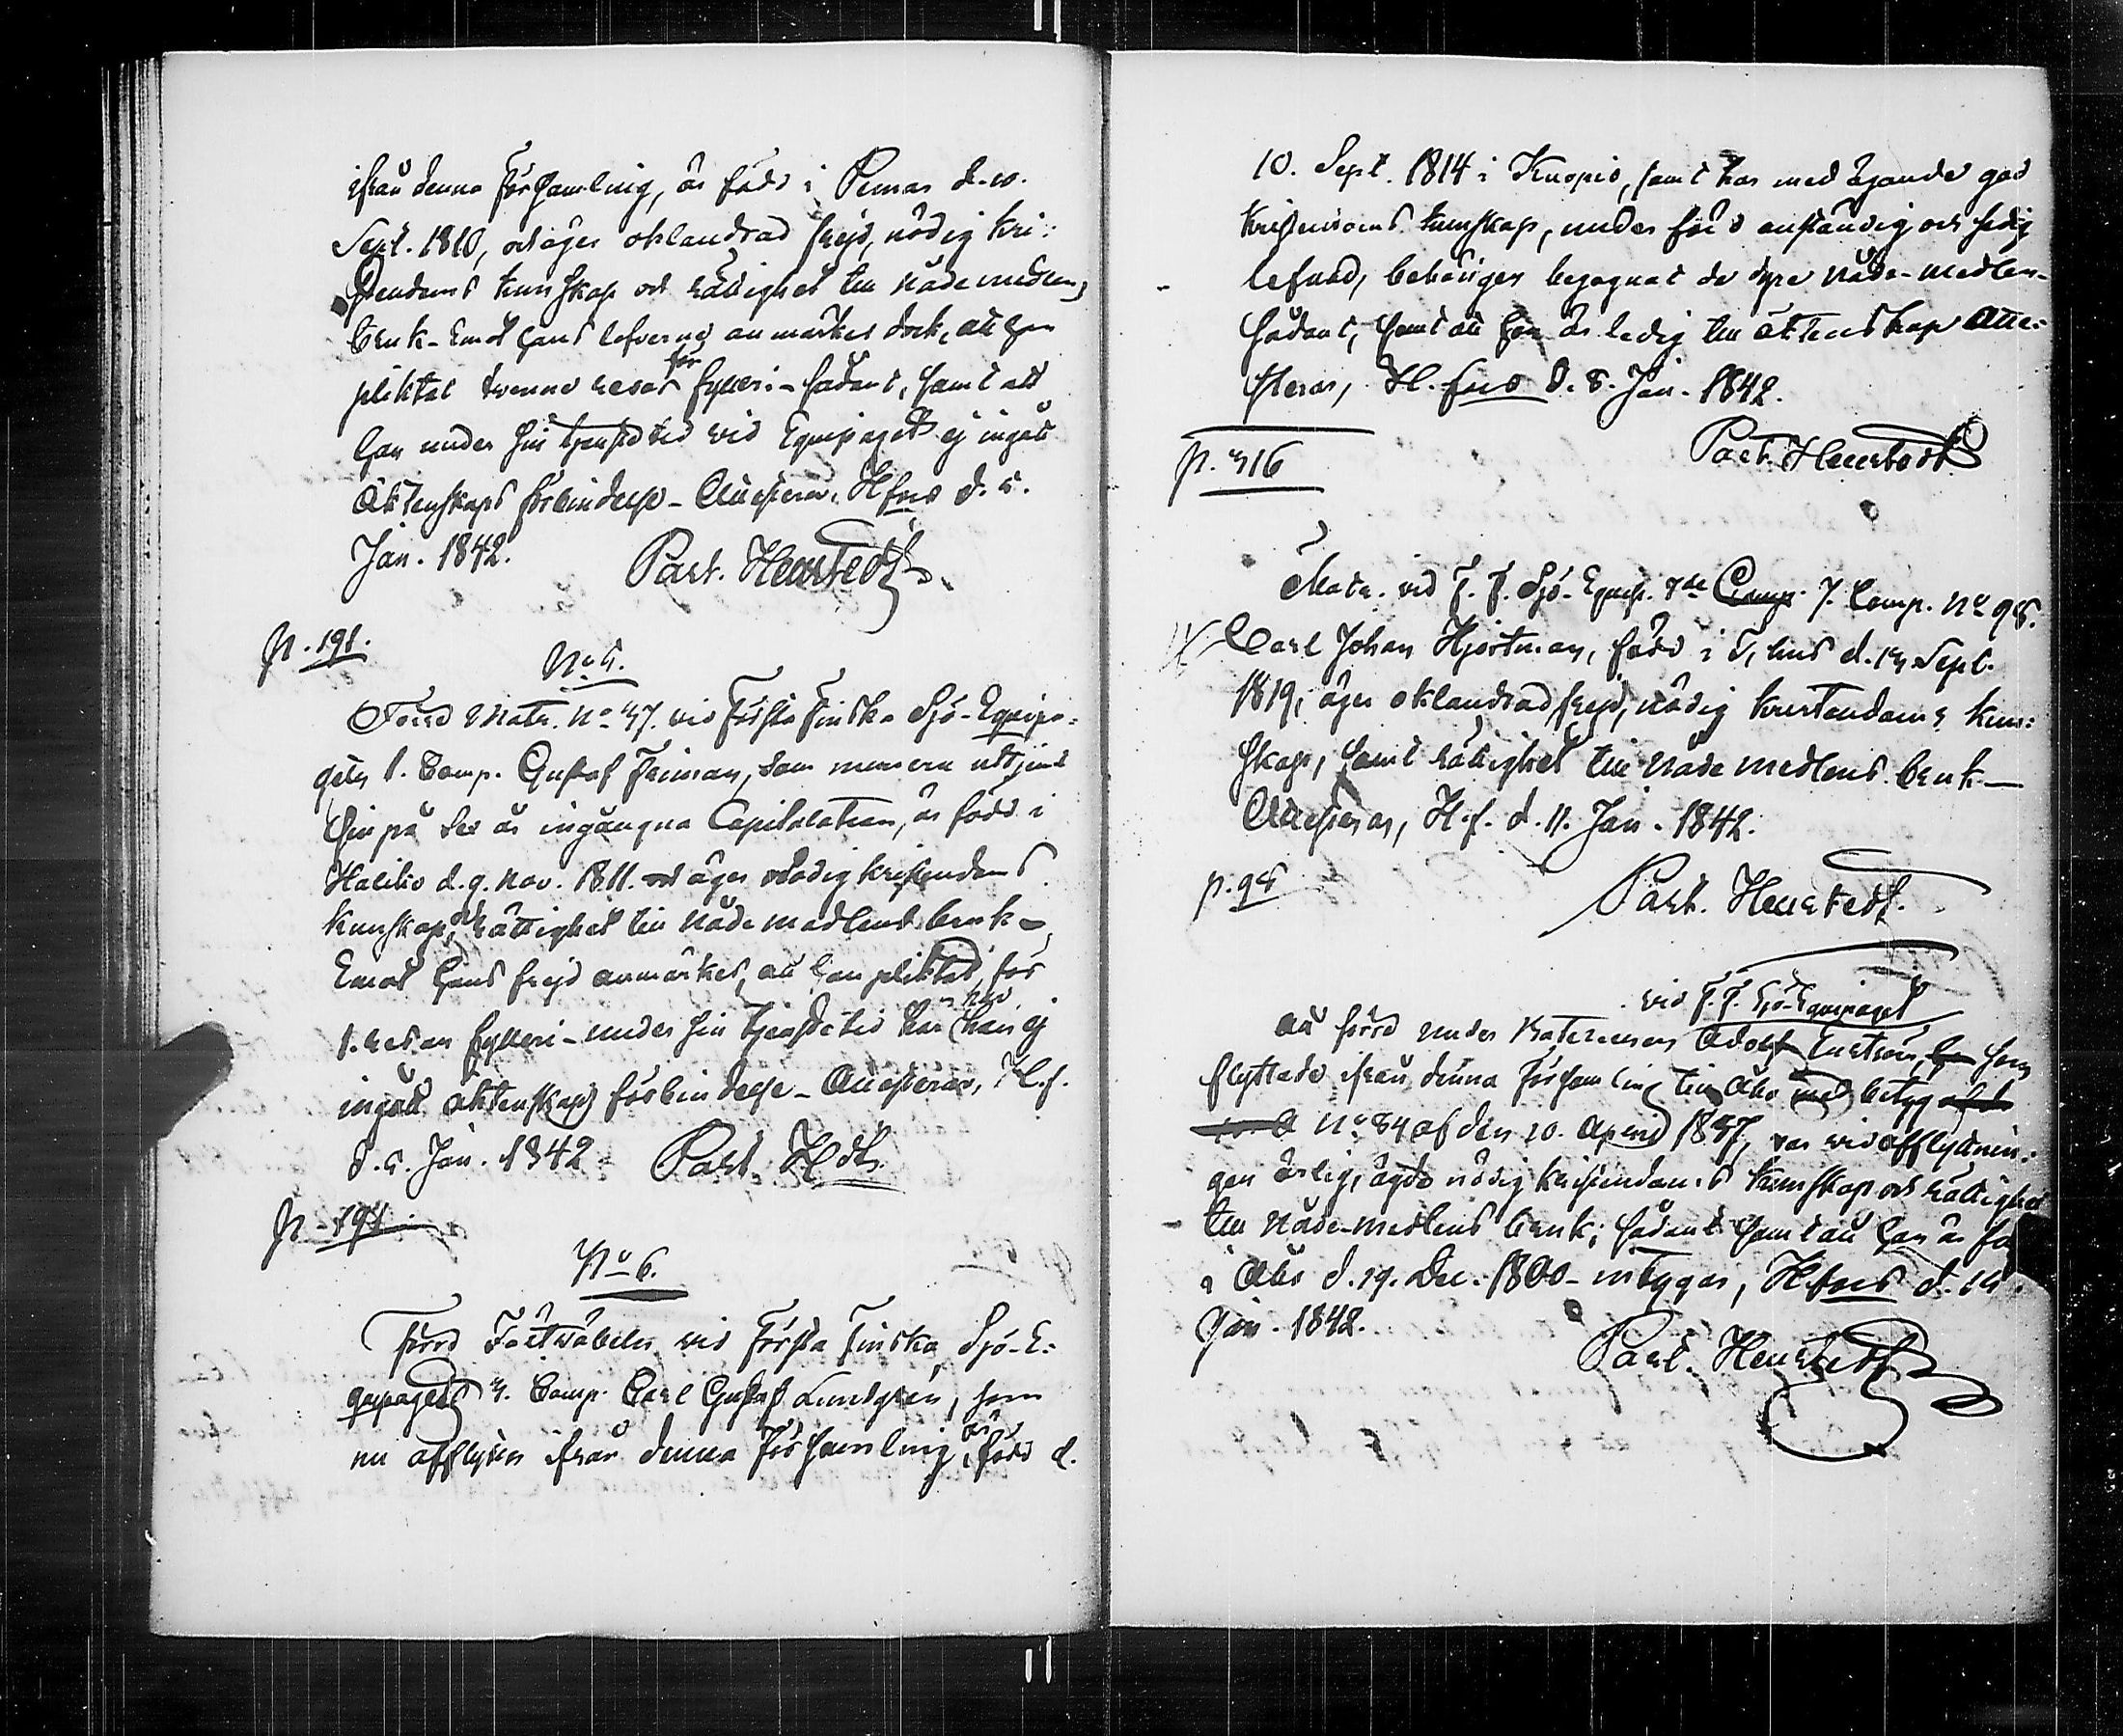 ifrån denna Församling, är född i Pemar d. 10.
Sept. 1810, och äger oklandrad frejd, nödig kri-
stendoms kunskap och rättighet till nådemedlens
bruk – Emot hans lefverne anmärkes dock, att han
pliktat tvenne resor för fylleri – sådant, samt att
han under sin tjenstetid vid Equipaget ej ingått
Äktenskaps förbindelse – Attesterar, Hfors d. 5.
Jan. 1842. Past. Hearstedt
p. 191.
No 5.
Förre Matr. No 37. vid Första Finska Sjö-Equipa-
gets 1. Comp. Gustaf Friman, som numera uttjent
sin på sex år ingångna Capitulation, är född i
Haliko d. 9. Nov. 1811. äger nödig kristendoms
kunskap, och rättighet till nådemedlens bruk –
Emot hans frejd anmärkes, att han pliktat för
1. resan fylleri – under sin tjenstetid har han ej
ingått äktenskaps förbindelse – Attesterar, H.f.
d. 5. Jan. 1842 Past. Hdt.
p. 191.
No 6.
Förre Fältväbeln vid Första Finska Sjö-E-
quipagets 3. Comp. Carl Gustaf Lundgren, som
nu afflyttar ifrån denna Församling, är född d.
10. Sept. 1814 i Kuopio, samt har med ägande god
Kristendoms kunskap, under fört anständig och sedig
lefnad, behörigen begagnat de dyra Nåde-medlen –
sådant, samt att han är ledig till äktenskap Atte-
sterar, H.fors d. 8. Jan. 1842.
Past. Hearstedt
p. 316
Matr. vid F. F. Sjö-Equip. 7. Comp. No 98.
Carl Johan Hjortman, född i d. Sept.
1819, äger oklandrad frejd, nödig kristendoms kun-
skap, samt rättighet till Nådemedlens bruk –
Attesteras, H.f. d. 11. Jan. 1842.
p. 95
Past. Hearstedt.
vid F. F. Sjö-Equipaget
att förre under Adolf som
flyttade ifrån denna Församling till Åbo med betyg
No 84 af den 20. 1837, var vid afflyttnin-
gen ärlig, ägde nödig kristendoms kunskap och rättighet
till Nåde-medlens bruk; sådant samt att han är
i Åbo d. 29. Dec. 1800 – intygas, H.fors d. 14.
Jan. 1842.
Past. Hearstedt